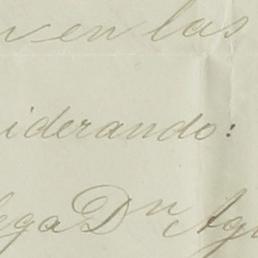 en las
iderando:
ega Dn Agu